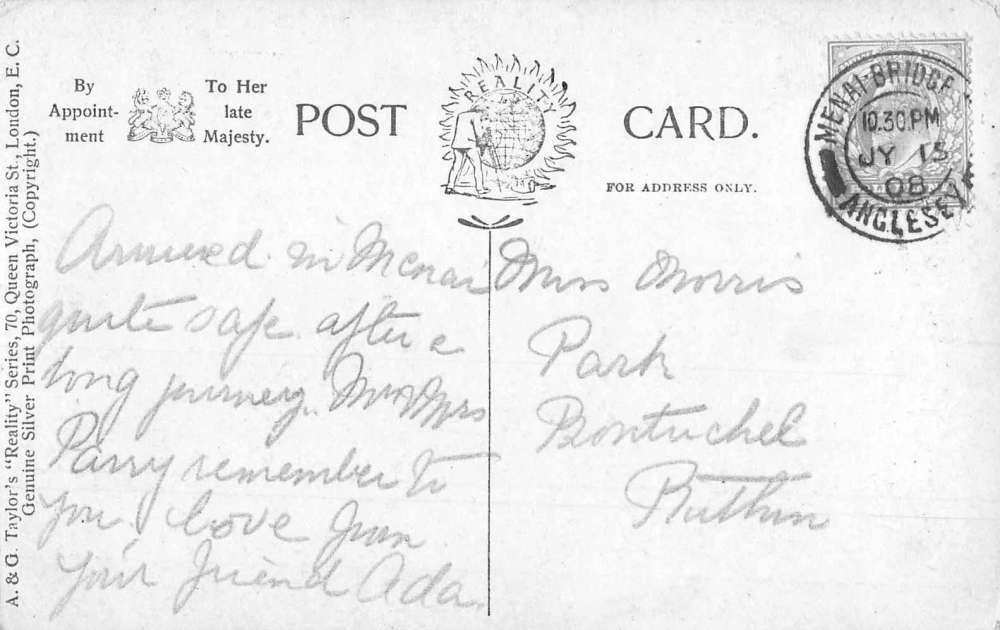 A. & G. Taylor's "Reality" Series, 70, Queen Victoria St., London, E. C.
Genuine Silver Print Photograph, (Copyright.)
By
Appoint-
ment
To Her
late
Majesty.
POST
REALITY
CARD.
FOR ADDRESS ONLY.
MENAI-BRIDGE
10.30.PM
JY 15
08
ANGLESEY
Arrived in Menai
quite safe after a
long journey. Mr & Mrs
Parry remember to
you, love from
your friend Ada
Miss Morris
Park
Bontuchel
Ruthin